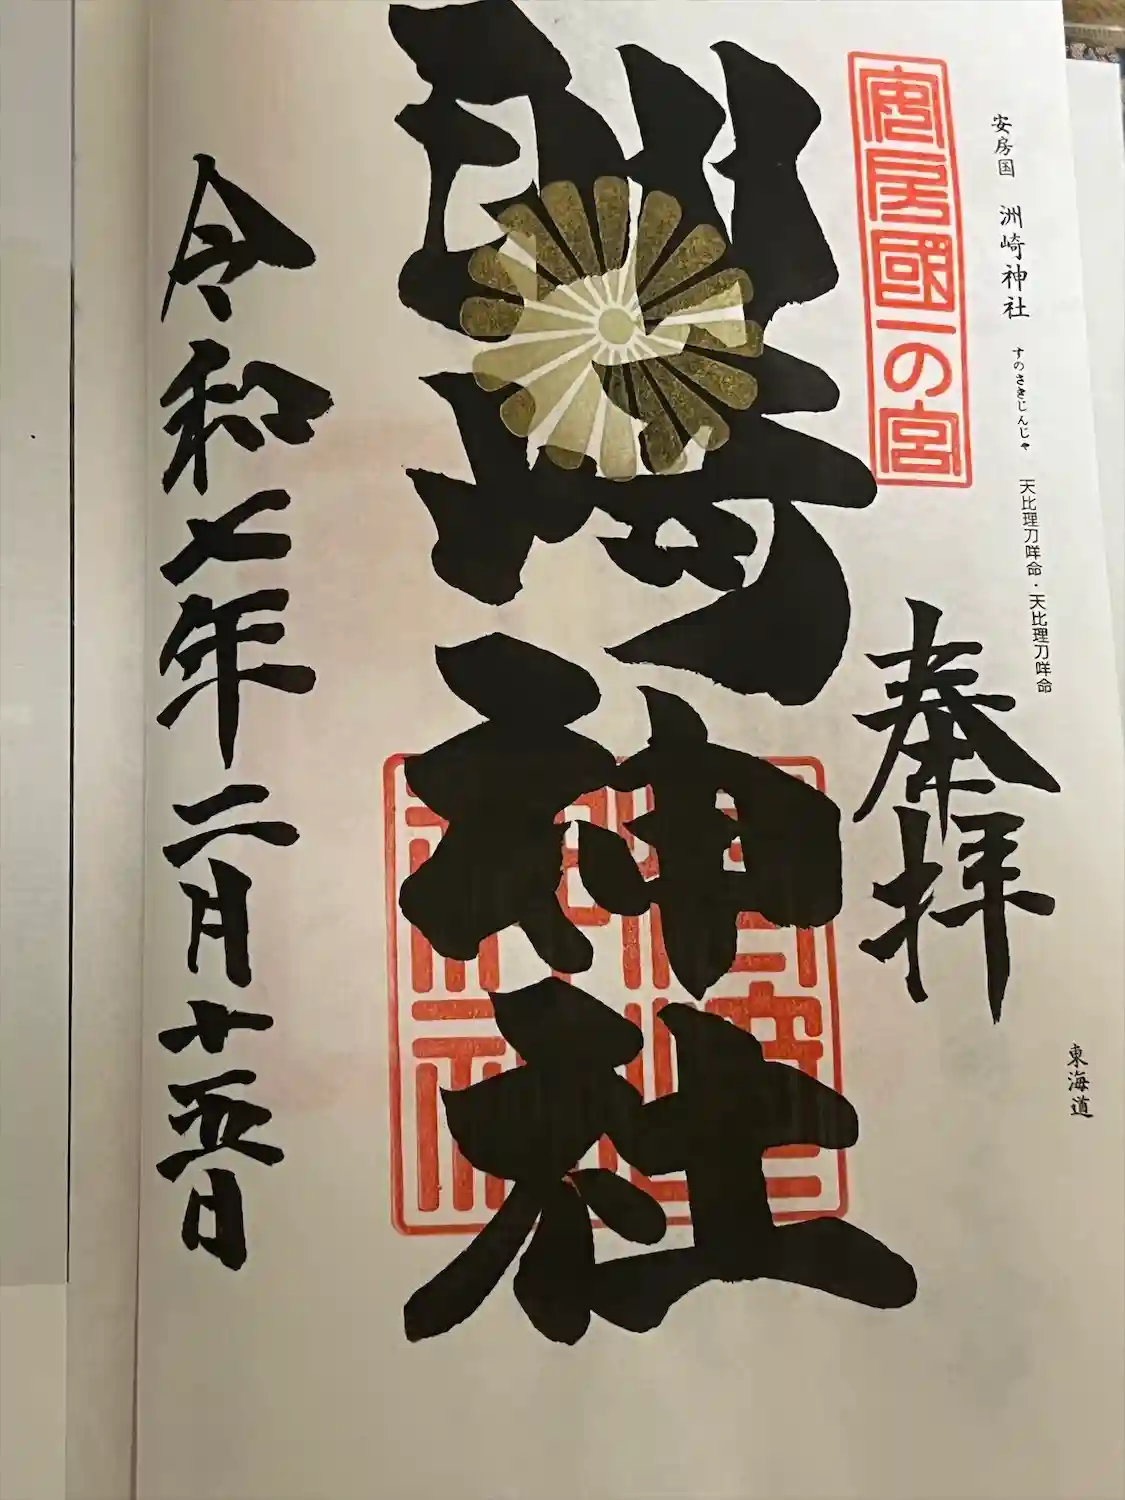 安房国 洲崎神社 すのさきじんじゃ 天比理刀咩命・天比理刀咩命
東海道
安房國一の宮
奉拝
洲崎神社
令和七年二月十五日